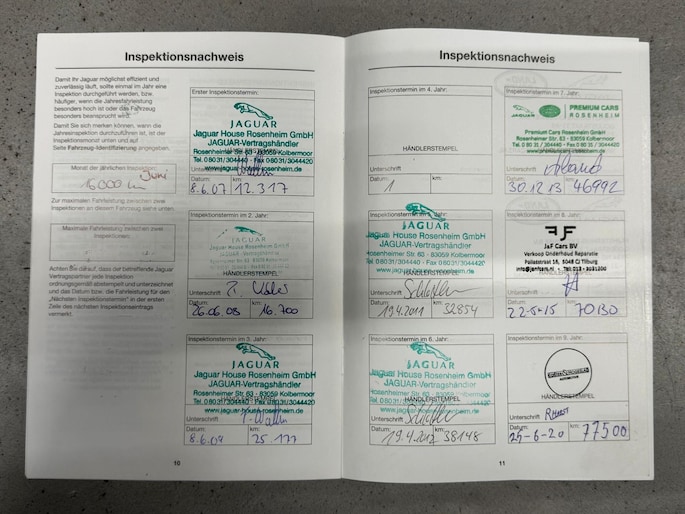 Inspektionsnachweis
Damit Ihr Jaguar möglichst effizient und
zuverlässig läuft, sollte einmal im Jahr eine
Inspektion durchgeführt werden, bzw.
häufiger, wenn die Jahresfahrleistung
besonders hoch ist oder das Fahrzeug
besonders beansprucht wird.
Damit Sie sich merken können, wann die
Jahresinspektion durchzuführen ist, ist der
Inspektionsmonat unten und auf
Seite Fahrzeug-Identifizierung angegeben.
Monat der jährlichen Inspektion
Juni
Zur maximalen Fahrleistung zwischen zwei
Inspektionen an diesem Fahrzeug siehe unten.
Maximale Fahrleistung zwischen zwei
Inspektionen.
Achten Sie darauf, dass der betreffende Jaguar
Vertragshändler jede Inspektion
ordnungsgemäß abstempelt und unterzeichnet
und das Datum bzw. die Fahrleistung für den
"Nächsten Inspektionstermin" in der ersten
Zeile des nächsten Inspektionseintrags
vermerkt.
Erster Inspektionstermin:
JAGUAR
Jaguar House Rosenheim GmbH
JAGUAR-Vertragshändler
Rosenheimer Str. 63 - 83059 Kolbermoor
Tel. 08031/304440 - Fax 08031/3044420
www.jaguar-house-rosenheim.de
Unterschrift
Datum: km:
8.6.07 12.317
Inspektionstermin im 2. Jahr:
JAGUAR
Jaguar House Rosenheim GmbH
JAGUAR-Vertragshändler
HÄNDLERSTEMPEL
Unterschrift
Datum: km:
26.06.08 16.700
Inspektionstermin im 3. Jahr:
JAGUAR
Jaguar House Rosenheim GmbH
JAGUAR-Vertragshändler
Rosenheimer Str. 63 - 83059 Kolbermoor
Tel. 08031/304440 - Fax 08031/3044420
www.jaguar-house-rosenheim.de
Unterschrift
Datum: km:
8.6.09 25.177
10
Inspektionsnachweis
Inspektionstermin im 4. Jahr:
HÄNDLERSTEMPEL
Unterschrift
Datum: km:
Inspektionstermin im 5. Jahr:
JAGUAR
Jaguar House Rosenheim GmbH
JAGUAR-Vertragshändler
Rosenheimer Str. 63 - 83059 Kolbermoor
Tel. 08031/304440 - Fax 08031/3044420
www.jaguar-house-rosenheim.de
Unterschrift
Datum: km:
19.4.2011 32854
Inspektionstermin im 6. Jahr:
JAGUAR
Jaguar House Rosenheim GmbH
JAGUAR-Vertragshändler
Rosenheimer Str. 63 - 83059 Kolbermoor
HÄNDLERSTEMPEL
Tel. 08031/304440 - Fax 08031/3044420
www.jaguar-house-rosenheim.de
Unterschrift
Datum: km:
19.4.2012 38148
Inspektionstermin im 7. Jahr:
JAGUAR
PREMIUM CARS
ROSENHEIM
Premium Cars Rosenheim GmbH
Rosenheimer Str. 63 - 83059 Kolbermoor
Unterschrift
Datum: km:
30.12.13 46992
Inspektionstermin im 8. Jahr:
JaF Cars BV
Verkoop Onderhoud Reparatie
Unterschrift
Datum: km:
22-5-15 70130
Inspektionstermin im 9. Jahr:
HÄNDLERSTEMPEL
Unterschrift
Datum: km:
25-6-20 77500
11